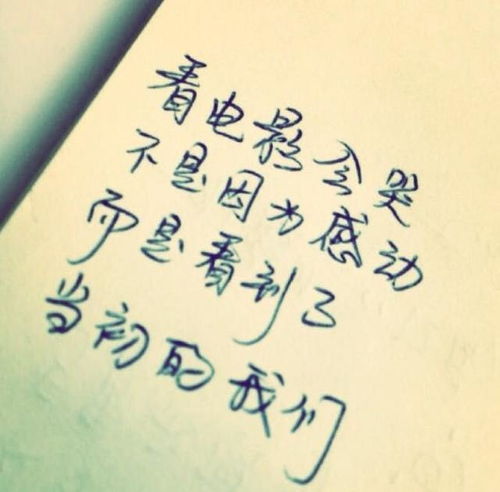 看电影会哭
不是因为感动
而是看到了
当初的我们